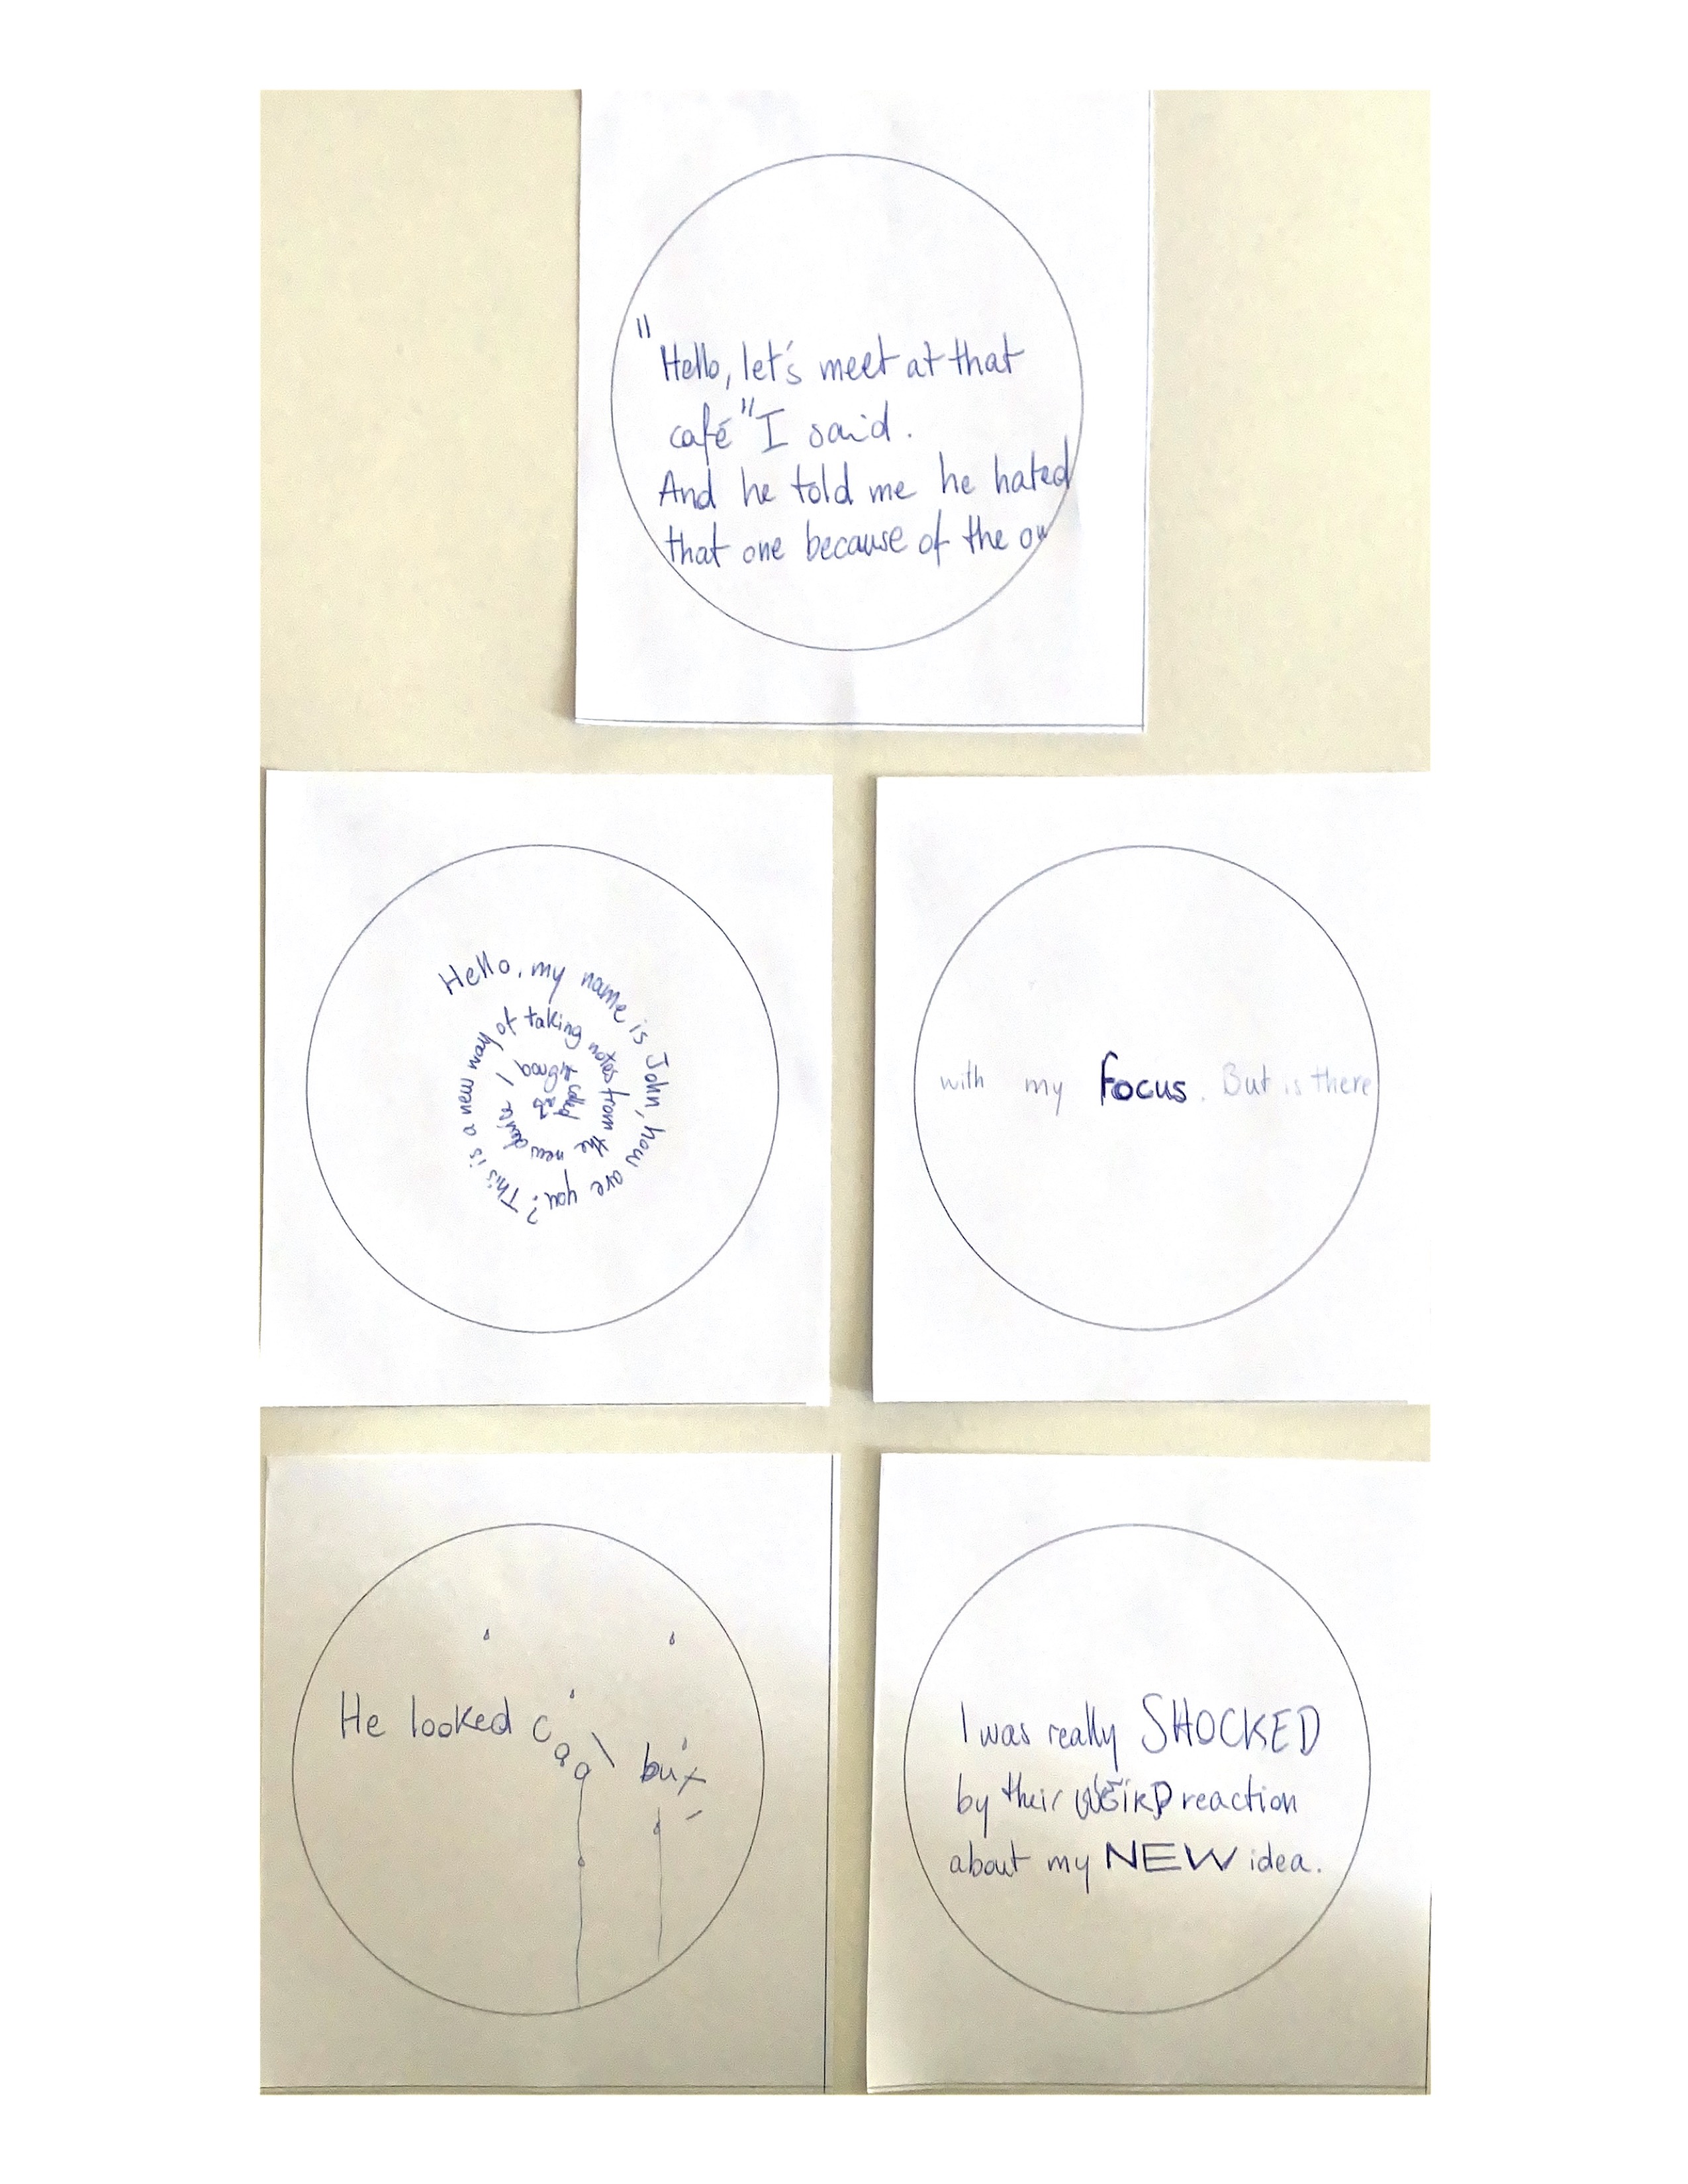 "Hello, let's meet at that
café" I said.
And he told me he hated
that one because of the ow
Hello, my name is John, how are you? This is a new way of taking notes from the new device I bought called
with my focus. But is there
He looked cool but
I was really SHOCKED
by their WEIRD reaction
about my NEW idea.